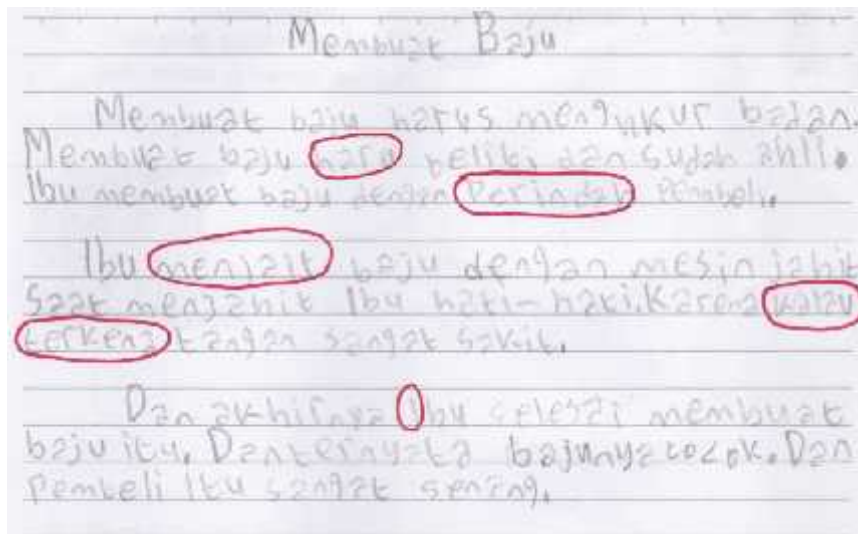 Membuat Baju
Membuat baju harus mengukur badan.
Membuat baju haru teliti dan sudah ahli.
Ibu membuat baju dengan Perindah Pembeli.
Ibu menjait baju dengan mesin jahit
Saat menjahit Ibu hati-hati. Karena kalau
terkena tangan sangat sakit.
Dan akhirnya Ibu selesai membuat
baju itu. Dan ternyata bajunya cocok. Dan
Pembeli Itu sangat senang.